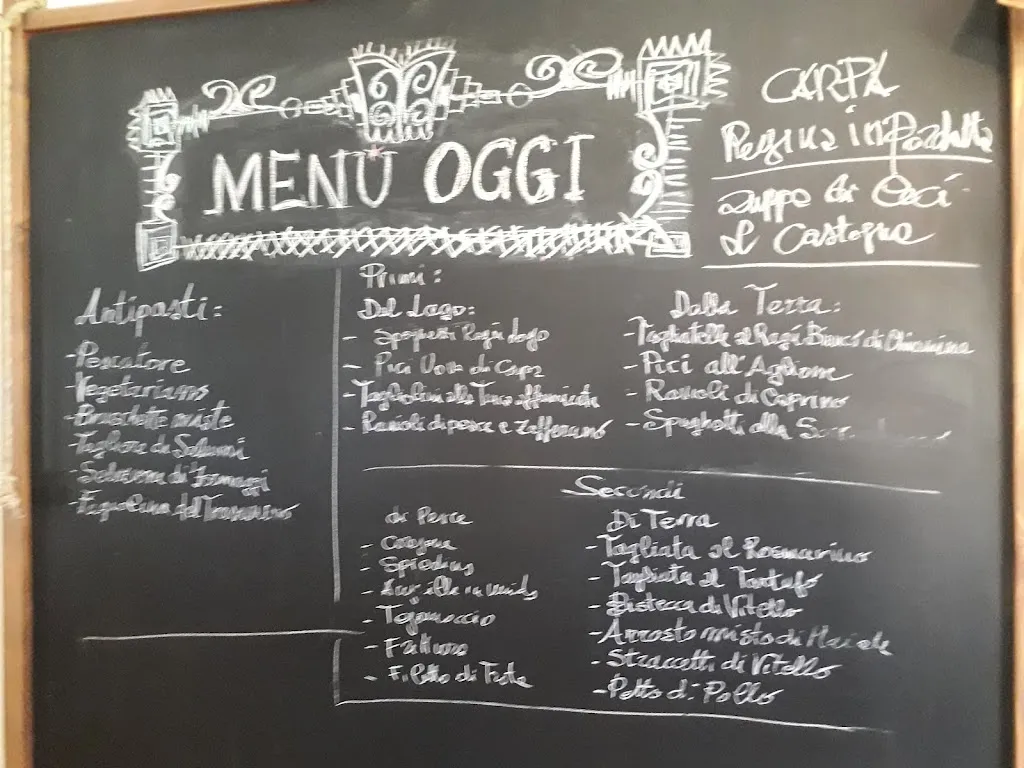 MENÙ OGGI
CARPA
Regina in Porchetta
zuppa di Ceci
e Castagne
Antipasti:
- Pescatore
- Vegetariano
- Bruschette miste
- Tagliere di Salumi
- Selezione di Formaggi
- Fagiolina del Trasimeno
Primi:
Del Lago:
- Regina lago
- Pici Uova di Carpa
- Tagliolini alla Tinca affumicata
- Ravioli di pesce e Zafferano
Dalla Terra:
- Tagliatelle al Ragù Bianco di Chianina
- Pici all'Aglione
- Ravioli di Caprino
- Spaghetti alla
Secondi
di Pesce
-
- Spiedino
- Anguilla in umido
- Tegamaccio
- Frittura
- Filetto di Trota
Di Terra
- Tagliata al Rosmarino
- Tagliata al Tartufo
- Bistecca di Vitello
- Arrosto misto di Maiale
- Straccetti di Vitello
- Petto di Pollo